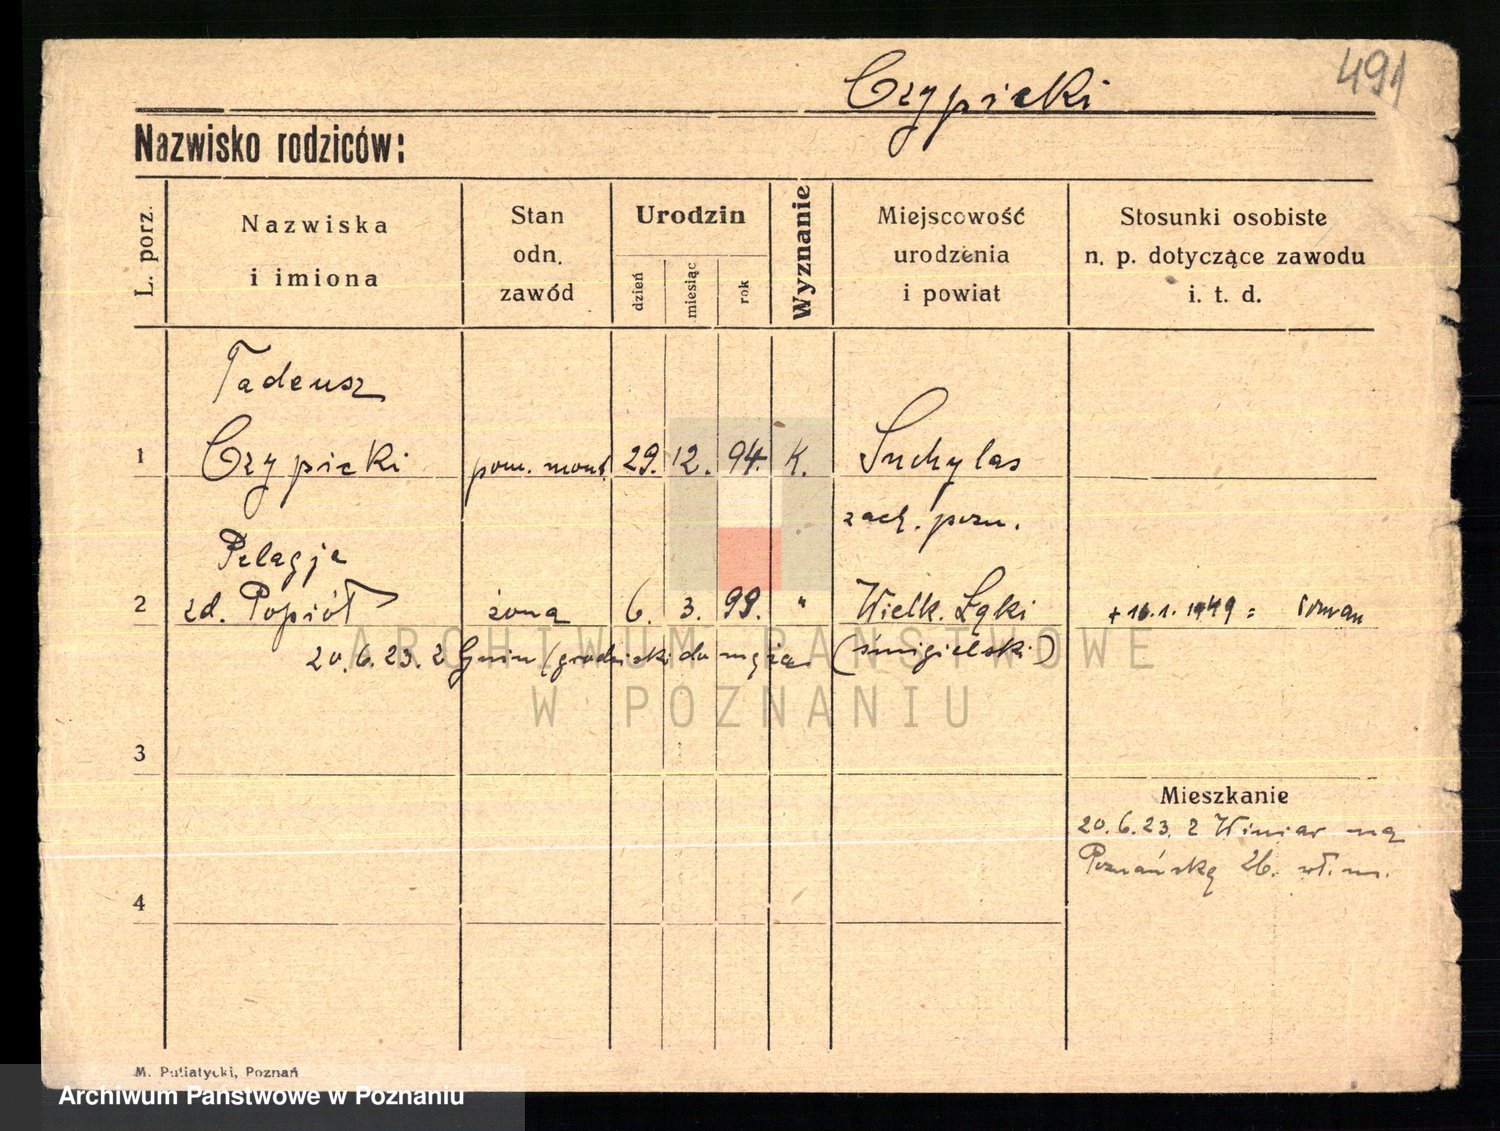 491
Czypicki
Nazwisko rodziców:
L. porz.
Nazwiska
i imiona
Stan
odn.
zawód
Urodzin
dzień
miesiąc
rok
Wyznanie
Miejscowość
urodzenia
i powiat
Stosunki osobiste
n. p. dotyczące zawodu
i. t. d.
Tadeusz
1 Czypicki pom. mont. 29. 12. 94. K. Suchylas
zach. pozn.
Pelagja
2 zd. Popiół żona 6. 3. 99. " Wielk. Łąki + 16.1.1949 =
20.6.23. z (grodziski do męża. (śmigielski)
ARCHIWUM PAŃSTWOWE
W POZNANIU
3
Mieszkanie
20.6.23. z Winiar na
Poznańską 26. wł. m.
4
M. Putiatycki, Poznań
Archiwum Państwowe w Poznaniu